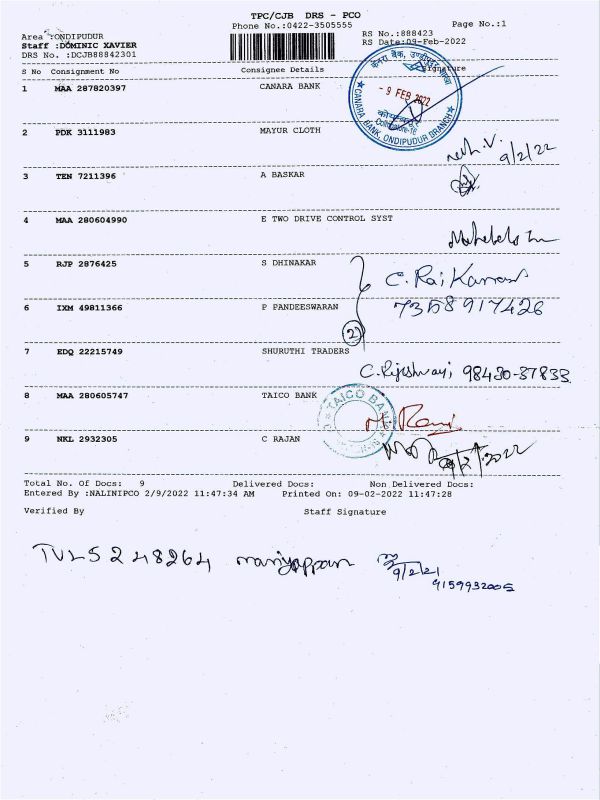 TPC/CJB DRS - PCO
Phone No.:0422-3505555
Page No.:1
Area :ONDIPUDUR
RS No.:888423
Staff :DOMINIC XAVIER
RS Date:09-Feb-2022
DRS No. :DCJB88842301
S No Consignment No Consignee Details Signature
1 MAA 287820397 CANARA BANK
केनरा बैंक,
- 9 FEB 2022
Coimbatore-16
★ CANARA BANK, ONDIPUDUR BRANCH ★
2 PDK 3111983 MAYUR CLOTH
9/2/22
3 TEN 7211396 A BASKAR
4 MAA 280604990 E TWO DRIVE CONTROL SYST
5 RJP 2876425 S DHINAKAR
C. Rajkannan
6 IXM 49811366 P PANDEESWARAN
7358917426
2
7 EDQ 22215749 SHURUTHI TRADERS
98430-37833
8 MAA 280605747 TAICO BANK
TAICO BANK
M. Rani
9 NKL 2932305 C RAJAN
Total No. Of Docs: 9 Delivered Docs: Non Delivered Docs:
Entered By :NALINIPCO 2/9/2022 11:47:34 AM Printed On: 09-02-2022 11:47:28
Verified By Staff Signature
TVL 5248264 mariyappan
9/2/21
9159932005